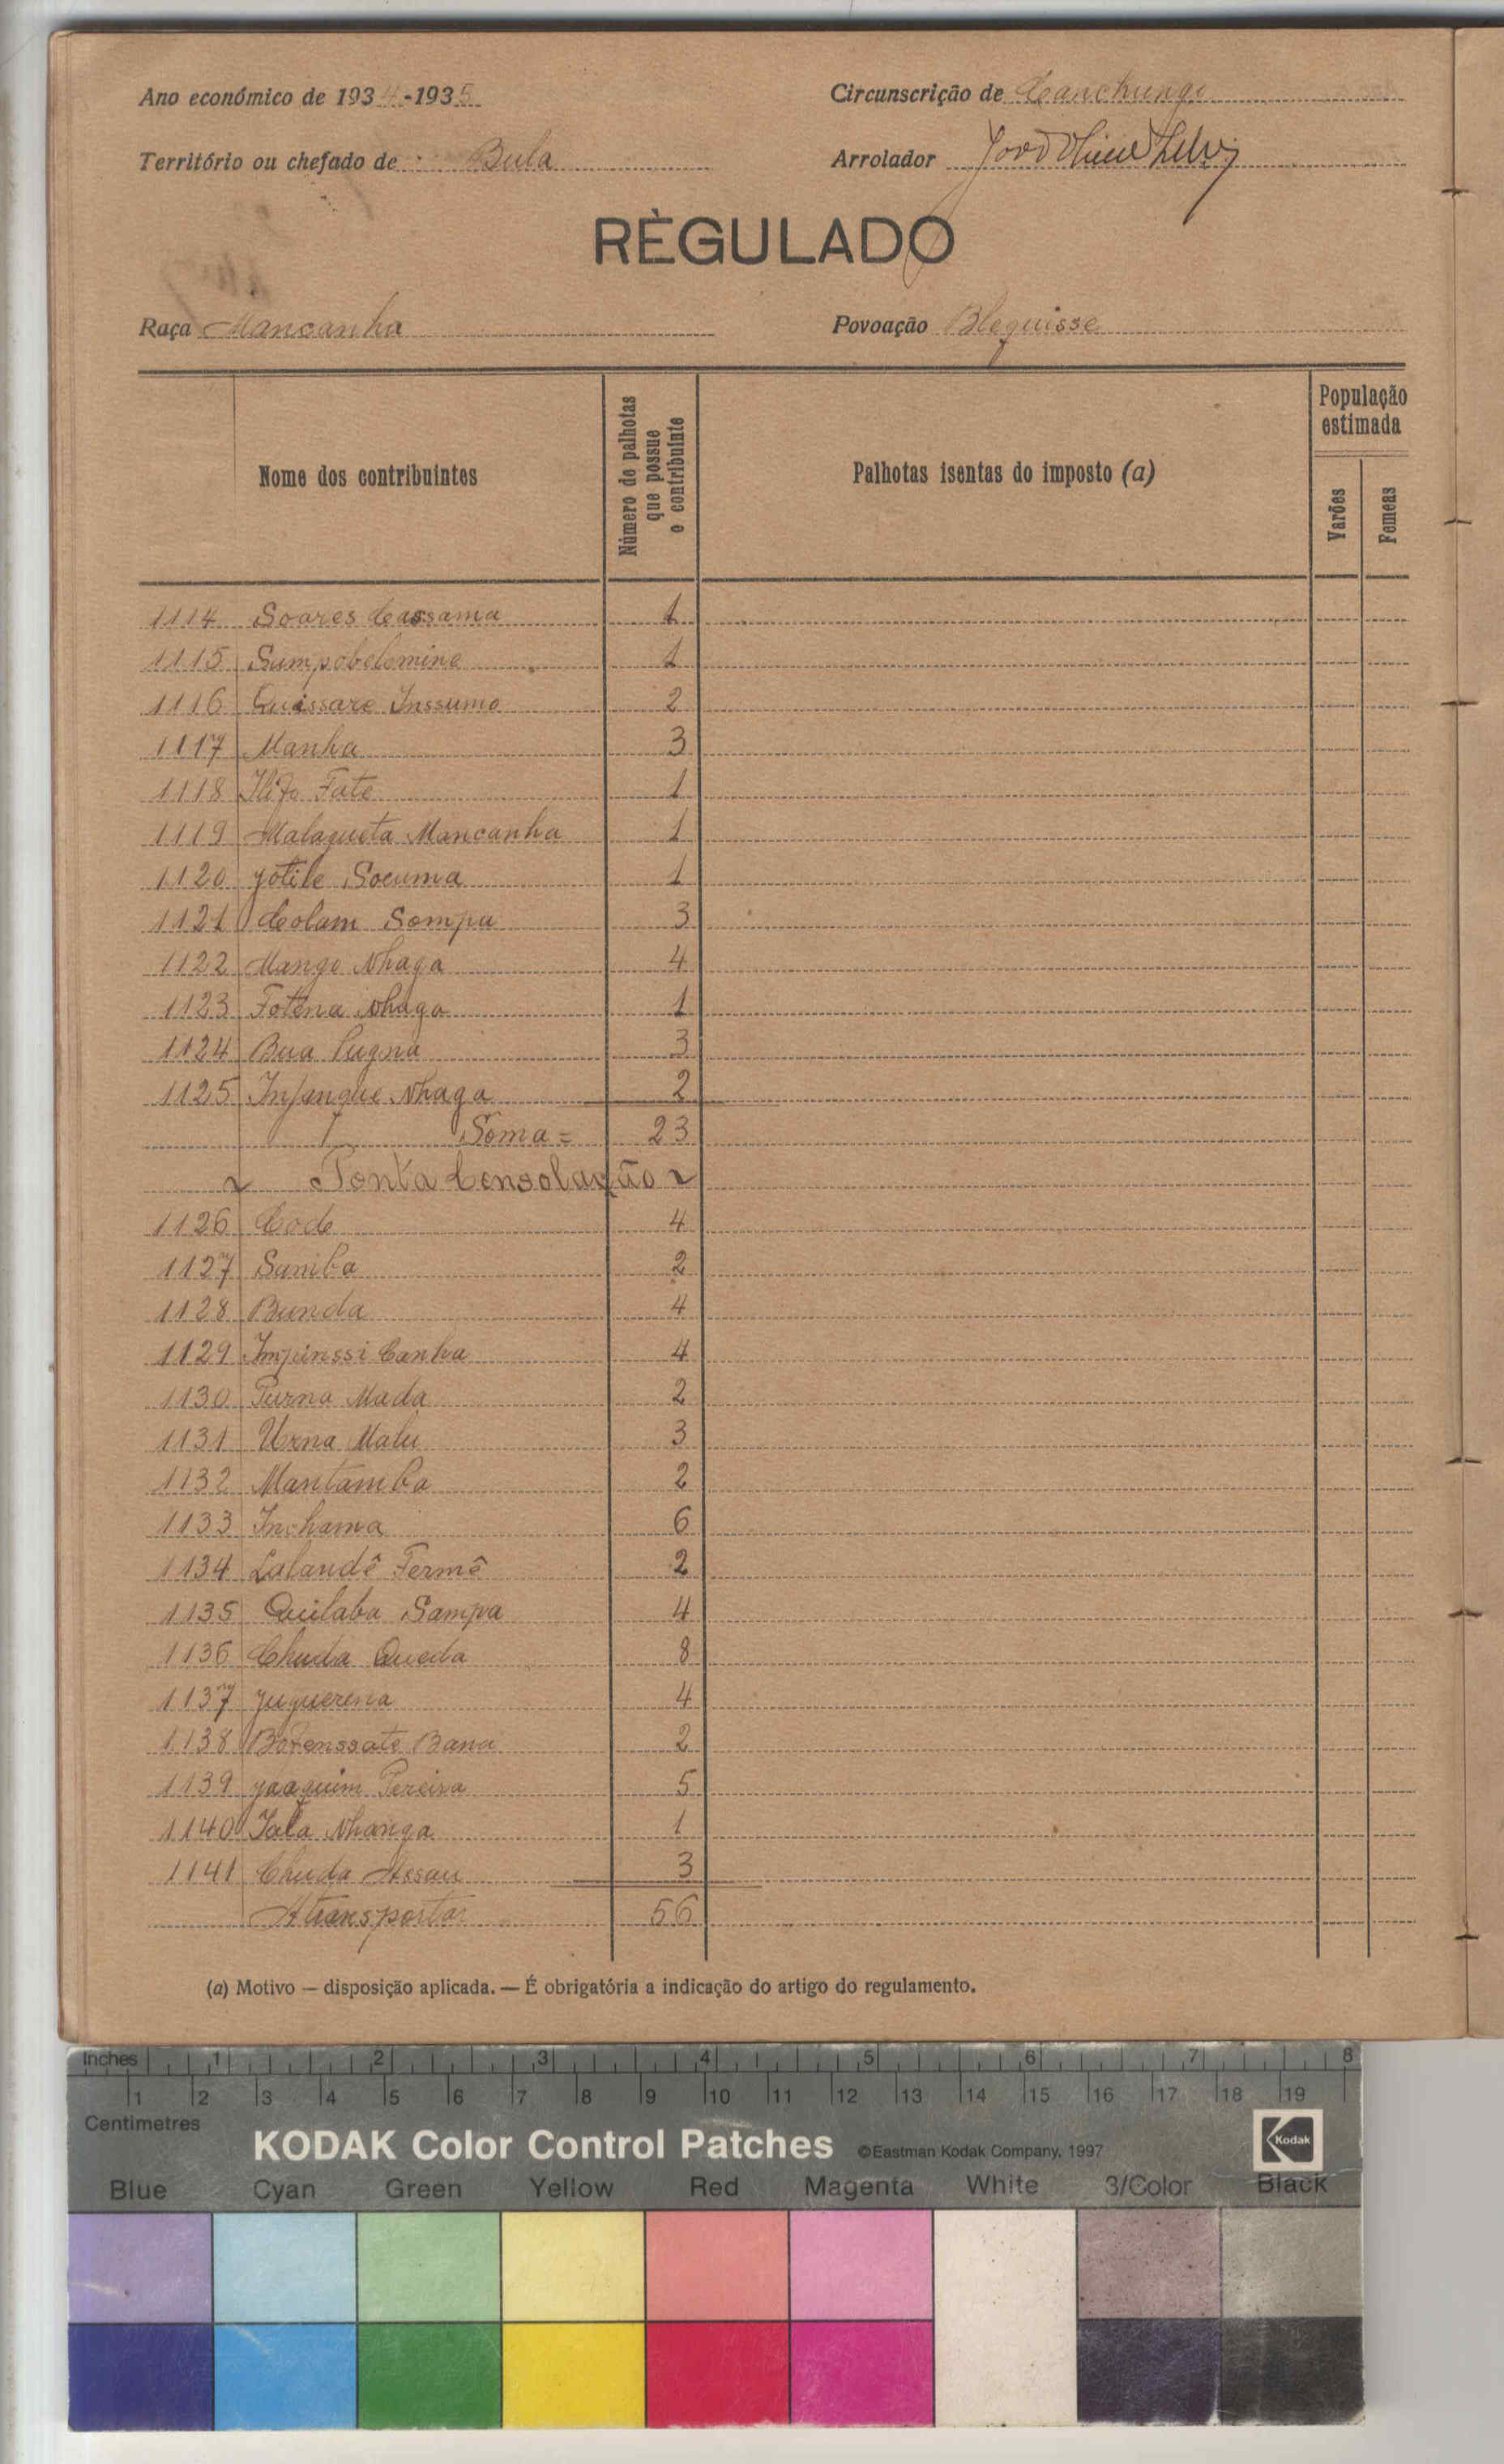 Ano económico de 1934-1935 Circunscrição de Canchungo
Território ou chefado de : Bula Arrolador
RÈGULADO
Raça Mancanha Povoação Blequisse
Nome dos contribuintes
Número de palhotas que possue o contribuinte
Palhotas isentas do imposto (a)
População estimada
Varões
Femeas
1114 Soares Cassama 1
1115 Sumpobelomine 1
1116 Quissare Inssumo 2
1117 Manha 3
1118 Fate 1
1119 Malagueta Mancanha 1
1120 Jotile Socuma 1
1121 Colam Sompu 3
1122 Mango Nhaga 4
1123 Fotena Nhaga 1
1124 Bua Pugna 3
1125 Infanque Nhaga 2
Soma = 23
Ponta Consolação
1126 Code 4
1127 Samba 2
1128 Bunda 4
1129 Impinssi Canha 4
1130 Purna Mada 2
1131 Urna Malu 3
1132 Mantamba 2
1133 Inchama 6
1134 Lalandê Fermê 2
1135 Quilaba Sampa 4
1136 Chuda Queba 8
1137 Juguerena 4
1138 Botenssate Bana 2
1139 Joaquim Pereira 5
1140 Jala Nhanga 1
1141 Chuda Assau 3
A transportar 56
(a) Motivo — disposição aplicada. — É obrigatória a indicação do artigo do regulamento.
Inches 1 2 3 4 5 6 7 8
1 2 3 4 5 6 7 8 9 10 11 12 13 14 15 16 17 18 19
Centimetres
KODAK Color Control Patches ©Eastman Kodak Company, 1997 Kodak
Blue Cyan Green Yellow Red Magenta White 3/Color Black